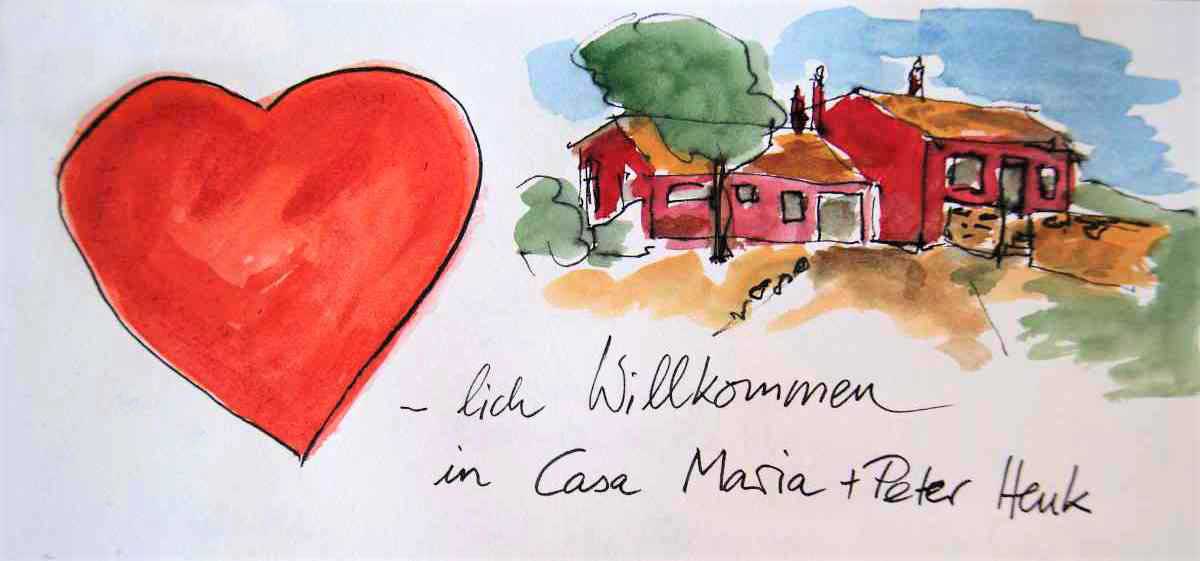 - lich Willkommen
in Casa Maria + Peter Henk